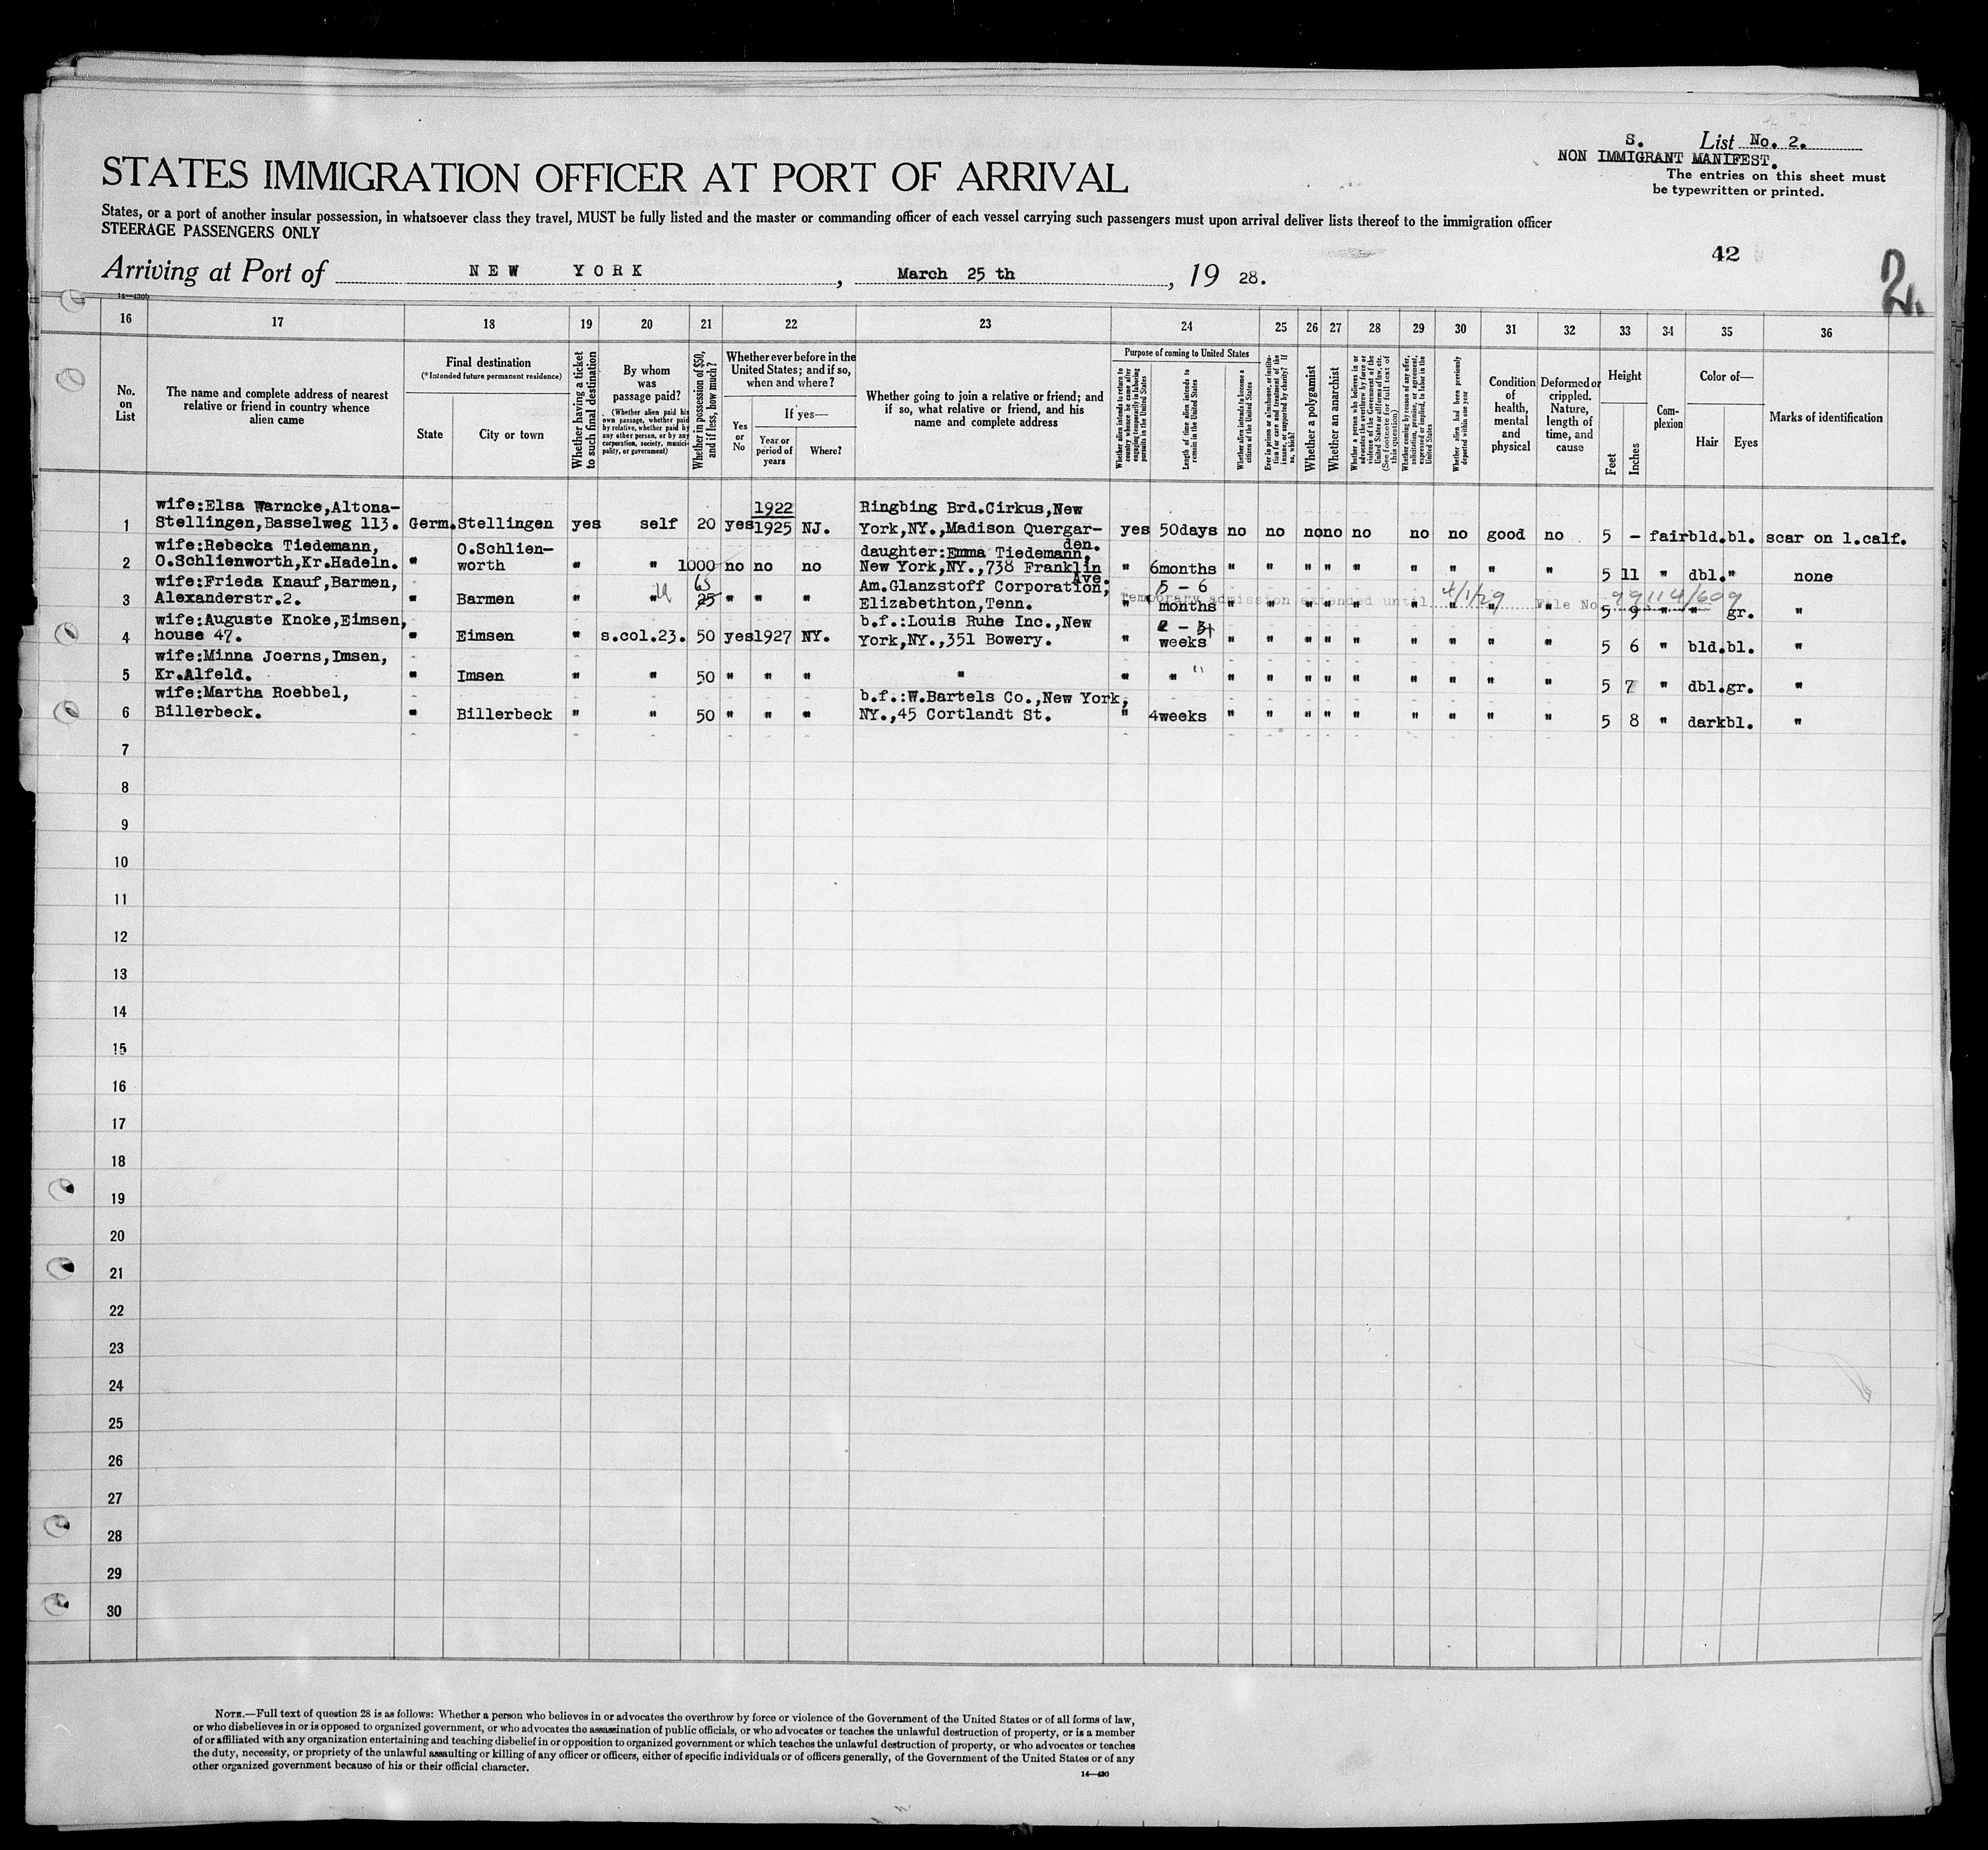 S. List No. 2.
NON IMMIGRANT MANIFEST.
The entries on this sheet must
be typewritten or printed.
STATES IMMIGRATION OFFICER AT PORT OF ARRIVAL
States, or a port of another insular possession, in whatsoever class they travel, MUST be fully listed and the master or commanding officer of each vessel carrying such passengers must upon arrival deliver lists thereof to the immigration officer
STEERAGE PASSENGERS ONLY
42
2.
Arriving at Port of NEW YORK, March 25 th, 19 28.
14—430b
16 17 18 19 20 21 22 23 24 25 26 27 28 29 30 31 32 33 34 35 36
No.
on
List
The name and complete address of nearest
relative or friend in country whence
alien came
Final destination
(*Intended future permanent residence)
State
City or town
Whether having a ticket
to such final destination
By whom
was
passage paid?
(Whether alien paid his
own passage, whether paid
by relative, whether paid by
any other person, or by any
corporation, society, munici-
pality, or government)
Whether in possession of $50,
and if less, how much?
Whether ever before in the
United States; and if so,
when and where?
Yes
or
No
If yes—
Year or
period of
years
Where?
Whether going to join a relative or friend; and
if so, what relative or friend, and his
name and complete address
Purpose of coming to United States
Whether alien intends to return to
country whence he came after
engaging temporarily in laboring
pursuits in the United States
Length of time alien intends to
remain in the United States
Whether alien intends to become a
citizen of the United States
Ever in prison or almshouse, or institu-
tion for care and treatment of the
insane, or supported by charity? If
so, which?
Whether a polygamist
Whether an anarchist
Whether a person who believes in or
advocates the overthrow by force or
violence of the Government of the
United States or all forms of law, etc.
(See footnote for full text of
this question)
Whether coming by reason of any offer,
solicitation, promise, or agreement,
expressed or implied, to labor in the
United States
Whether alien had been previously
deported within one year
Condition
of
health,
mental
and
physical
Deformed or
crippled.
Nature,
length of
time, and
cause
Height
Feet
Inches
Com-
plexion
Color of—
Hair
Eyes
Marks of identification
wife:Elsa Warncke,Altona- 1922 Ringbing Brd.Cirkus,New
1 Stellingen,Basselweg 113. Germ. Stellingen yes self 20 yes 1925 NJ. York,NY.,Madison Quergar- yes 50days no no no no no no no good no 5 - fair bld. bl. scar on l.calf.
den.
wife:Rebecka Tiedemann, O.Schlien- daughter:Emma Tiedemann,
2 O.Schlienworth,Kr.Hadeln. " worth " " 1000 no no no New York,NY.,738 Franklin " 6months " " " " " " " " " 5 11 " dbl. " none
Ave.
wife:Frieda Knauf,Barmen, 65 Am.Glanzstoff Corporation, 5 - 6
3 Alexanderstr.2. " Barmen " " 25 " " " Elizabethton,Tenn. " months " " " " " " " " " 5 9 " " gr. "
Temporary admission extended until 4/1/29 File No. 99114/609
wife:Auguste Knoke,Eimsen, b.f.:Louis Ruhe Inc.,New
4 house 47. " Eimsen " s.col.23. 50 yes 1927 NY. York,NY.,351 Bowery. " weeks " " " " " " " " " 5 6 " bld. bl. "
wife:Minna Joerns,Imsen,
5 Kr.Alfeld. " Imsen " " 50 " " " " " " " " " " " " " " " " 5 7 " dbl. gr. "
wife:Martha Roebbel, b.f.:W.Bartels Co.,New York,
6 Billerbeck. " Billerbeck " " 50 " " " NY.,45 Cortlandt St. " 4weeks " " " " " " " " " 5 8 " dark bl. "
7
8
9
10
11
12
13
14
15
16
17
18
19
20
21
22
23
24
25
26
27
28
29
30
NOTE.—Full text of question 28 is as follows: Whether a person who believes in or advocates the overthrow by force or violence of the Government of the United States or of all forms of law,
or who disbelieves in or is opposed to organized government, or who advocates the assassination of public officials, or who advocates or teaches the unlawful destruction of property, or is a member
of or affiliated with any organization entertaining and teaching disbelief in or opposition to organized government or which teaches the unlawful destruction of property, or who advocates or teaches
the duty, necessity, or propriety of the unlawful assaulting or killing of any officer or officers, either of specific individuals or of officers generally, of the Government of the United States or of any
other organized government because of his or their official character.
14—430